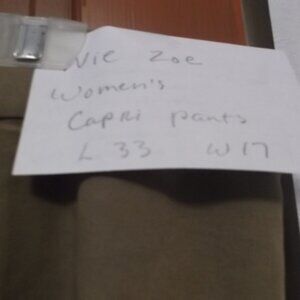 Nic Zoe
Women's
Capri pants
L 33 W 17